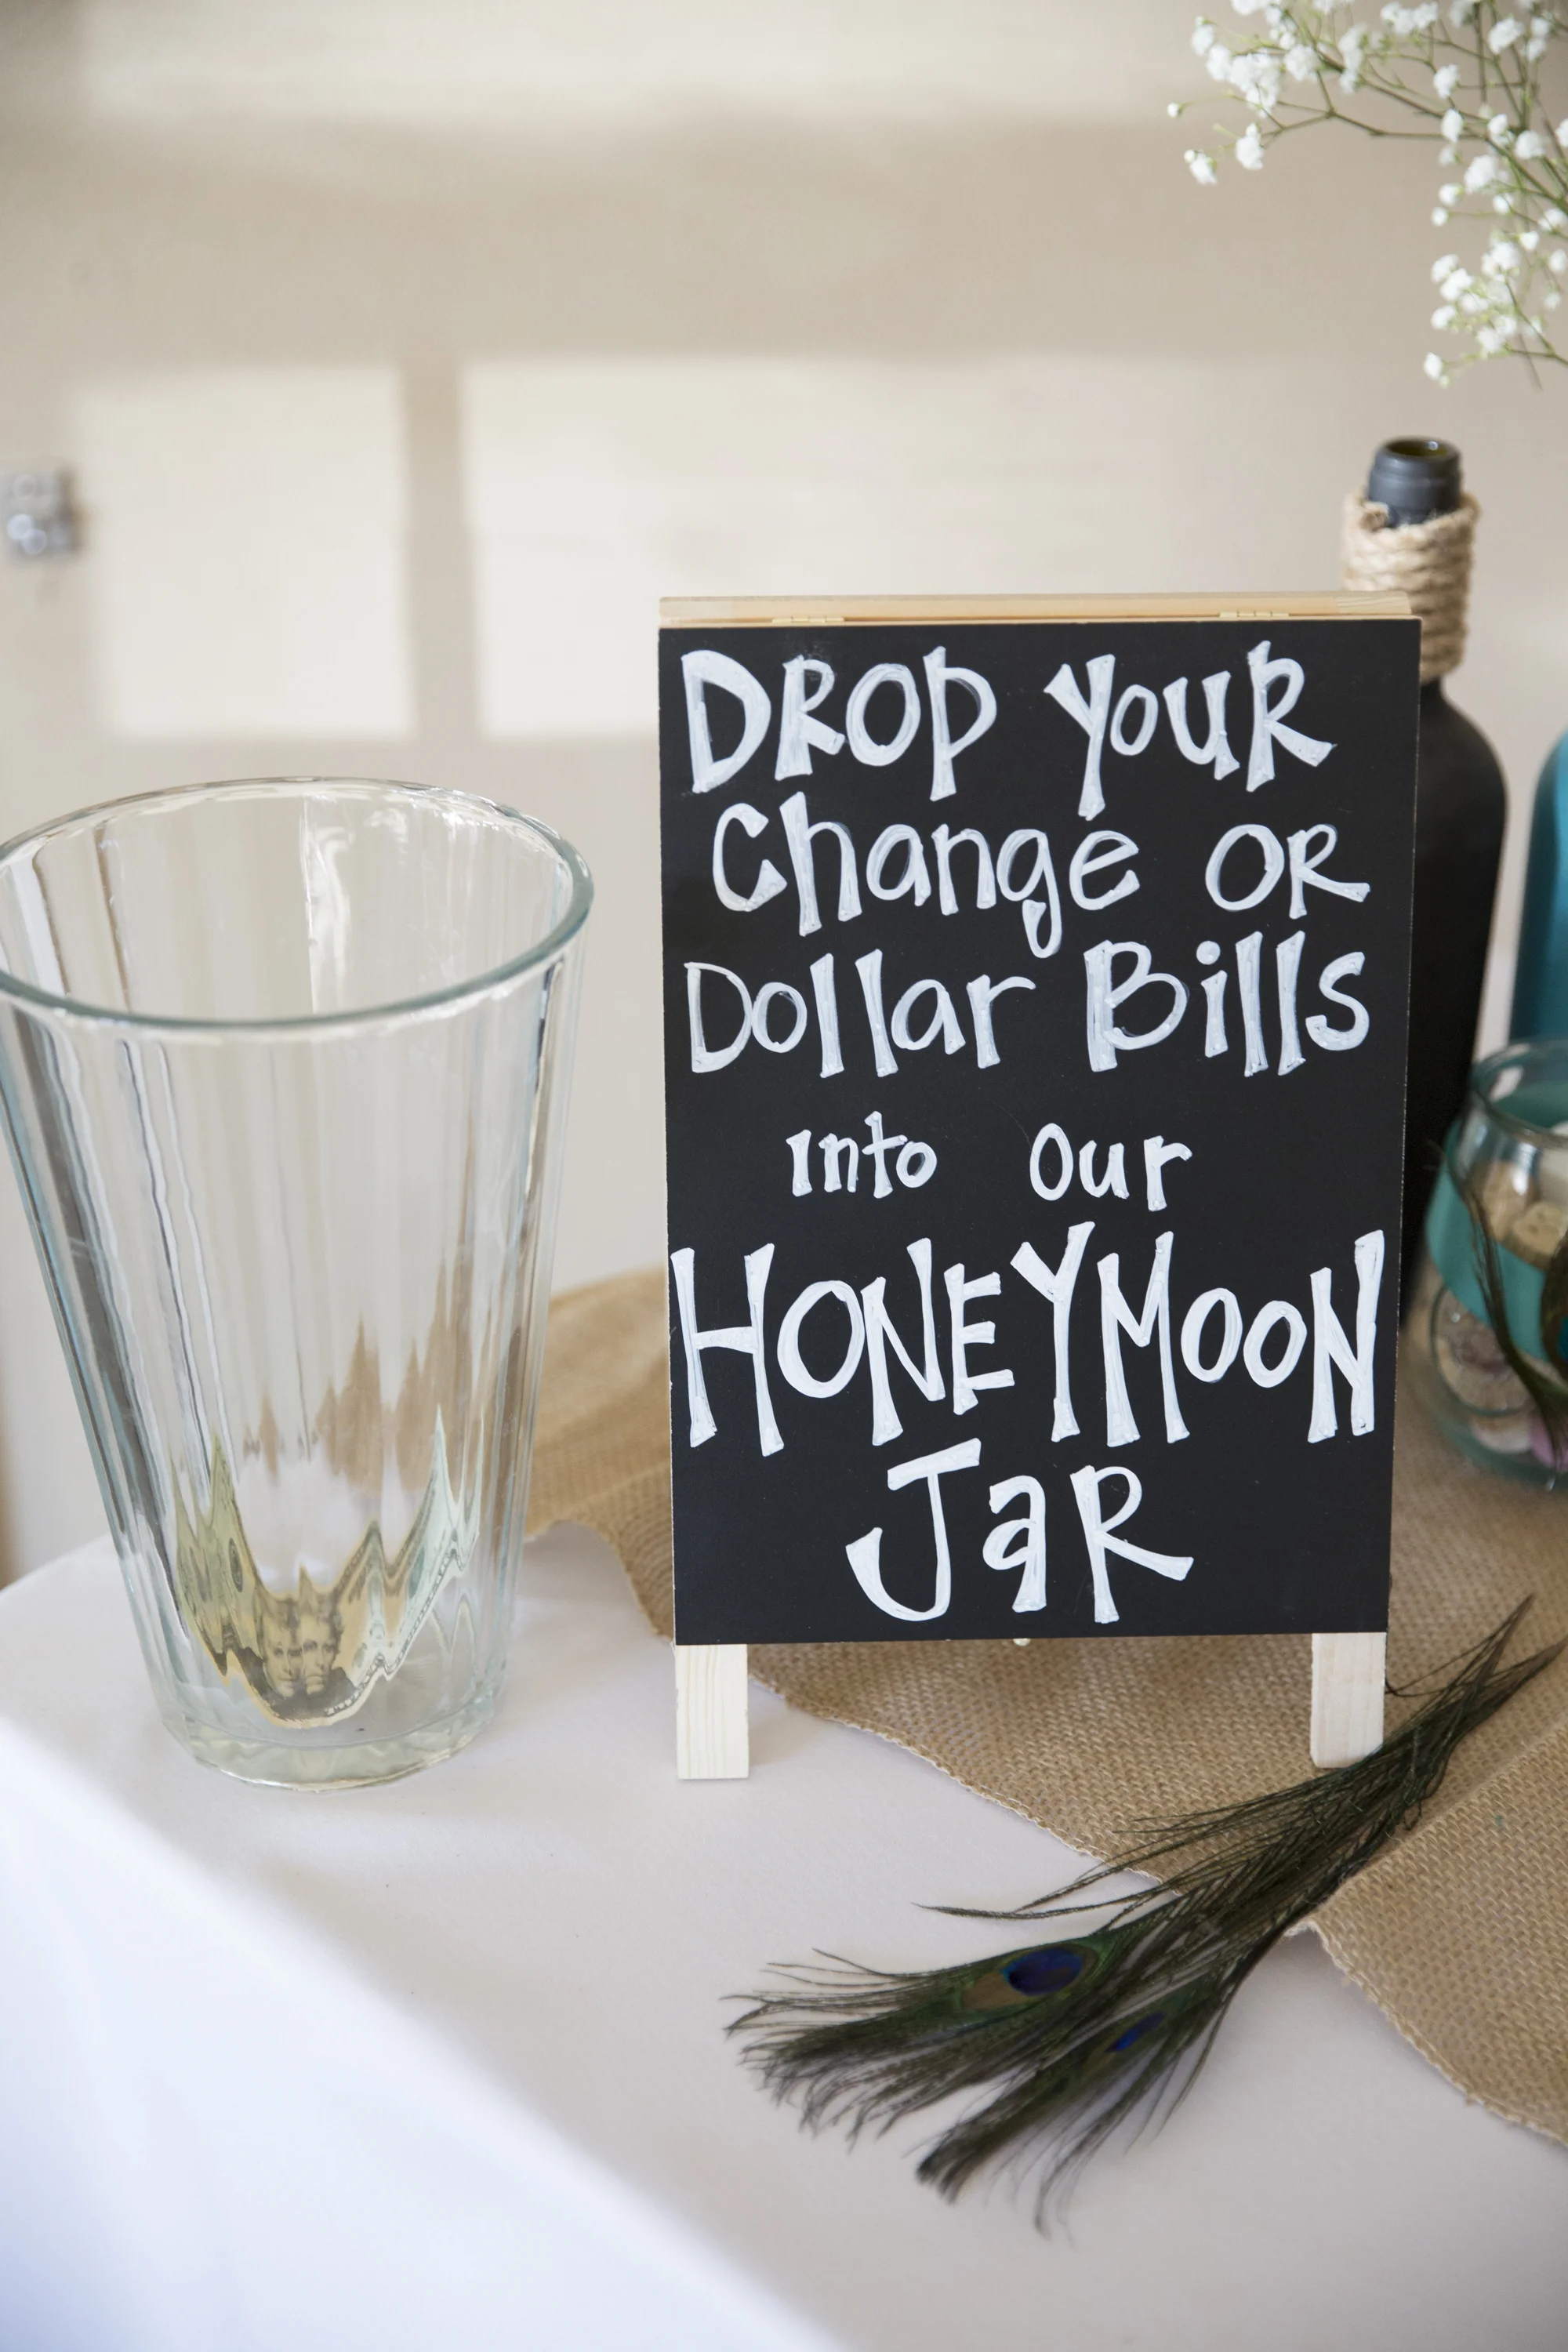 DROP YOUR
Change OR
Dollar Bills
into our
HONEYMOON
JaR